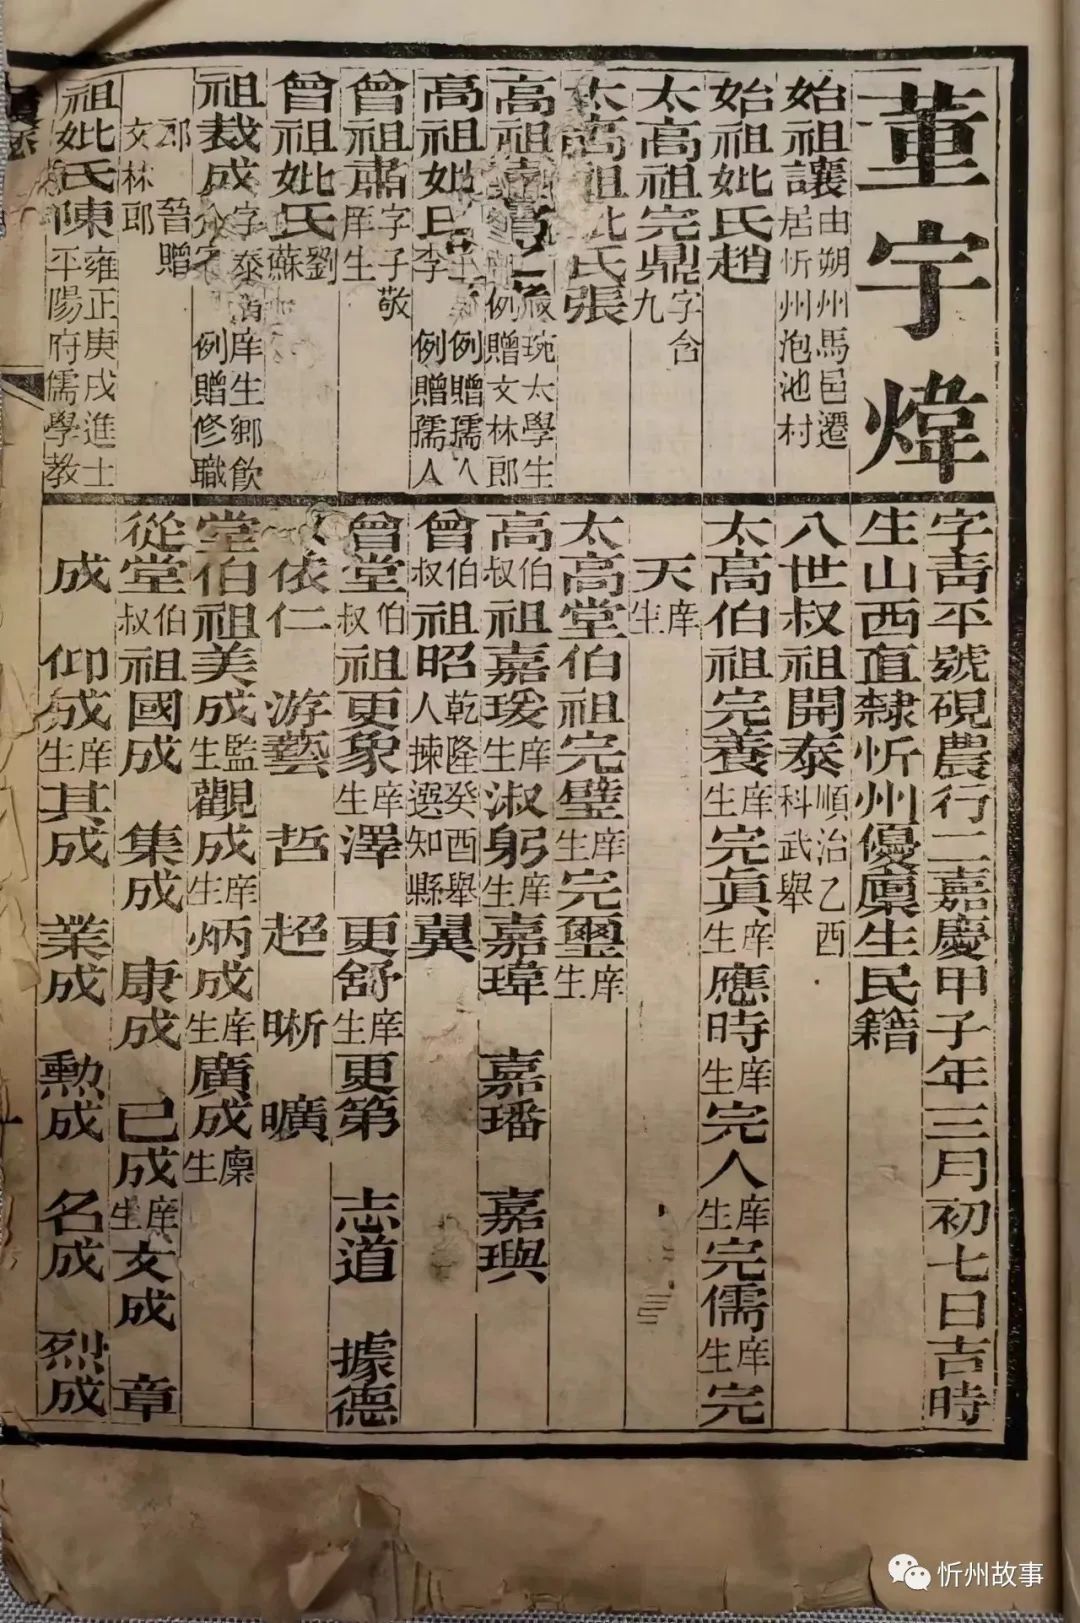 董宇煒
始祖讓由朔州馬邑遷居忻州泡池村
始祖妣氏趙
太高祖完鼎字台九
太高祖妣氏張
高祖嘉太學生例贈文林郎
高祖妣氏李例贈孺人例贈孺人
曾祖肅字子敬庠生
曾祖妣氏劉蘇
祖裁成字泰庠生鄉飲例贈修職
郎晉贈文林郎
祖妣氏陳雍正庚戌進士平陽府儒學教
字靑平號硯農行二嘉慶甲子年三月初七日吉時
生山西直隸忻州優廩生民籍
八世叔祖開泰順治乙酉科武舉
太高伯祖完養庠生完眞庠生應時庠生完人庠生完儒庠生完
天庠生
太高堂伯祖完璧庠生完璽庠生
高伯叔祖嘉瑗庠生淑躬庠生嘉瑋 嘉璠 嘉璵
曾伯叔祖昭乾隆癸酉舉人揀選知縣翼
曾堂伯叔祖更象庠生澤 更舒庠生更第 志道 據德
依仁 游藝 哲 超 晰 曠
堂伯祖美成監生觀成庠生炳成庠生廣成廩生
從堂伯叔祖國成 集成 康成 己成庠生文成 章
成 仰成庠生其成 業成 勳成 名成 烈成
忻州故事